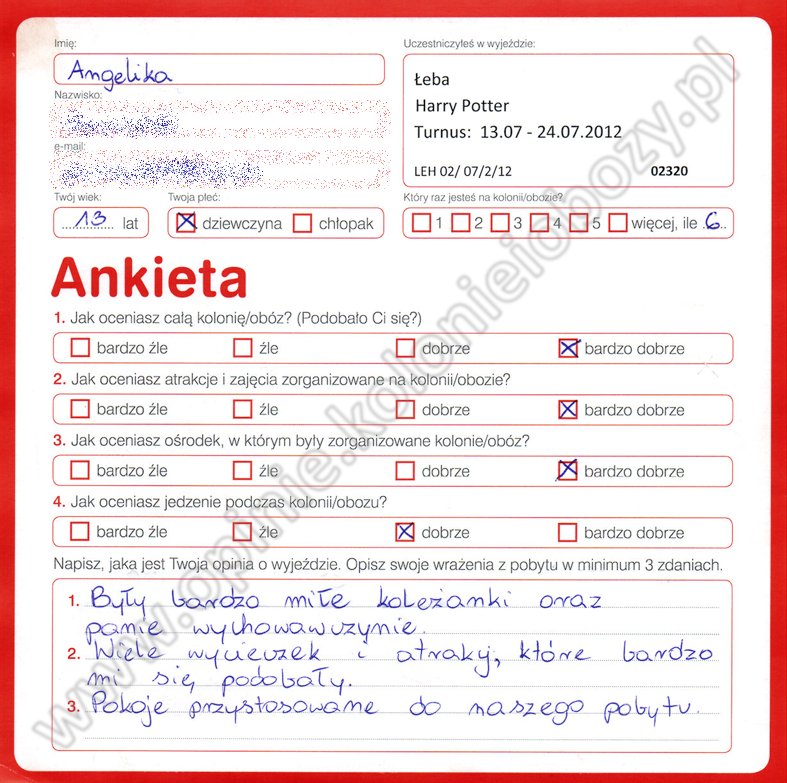 Imię:
Angelika
Nazwisko:
e-mail:
Twój wiek:
13 lat
Twoja płeć:
dziewczyna chłopak
Uczestniczyłeś w wyjeździe:
Łeba
Harry Potter
Turnus: 13.07 - 24.07.2012
LEH 02/ 07/2/12 02320
Który raz jesteś na kolonii/obozie?
1 2 3 4 5 więcej, ile 6
Ankieta
1. Jak oceniasz całą kolonię/obóz? (Podobało Ci się?)
bardzo źle źle dobrze bardzo dobrze
2. Jak oceniasz atrakcje i zajęcia zorganizowane na kolonii/obozie?
bardzo źle źle dobrze bardzo dobrze
3. Jak oceniasz ośrodek, w którym były zorganizowane kolonie/obóz?
bardzo źle źle dobrze bardzo dobrze
4. Jak oceniasz jedzenie podczas kolonii/obozu?
bardzo źle źle dobrze bardzo dobrze
Napisz, jaka jest Twoja opinia o wyjeździe. Opisz swoje wrażenia z pobytu w minimum 3 zdaniach.
1. Były bardzo miłe koleżanki oraz
panie wychowawczynie.
2. Wiele wycieczek i atrakcj, które bardzo
mi się podobały.
3. Pokoje przystosowane do naszego pobytu.
www.opinie.kolonieiobozy.pl